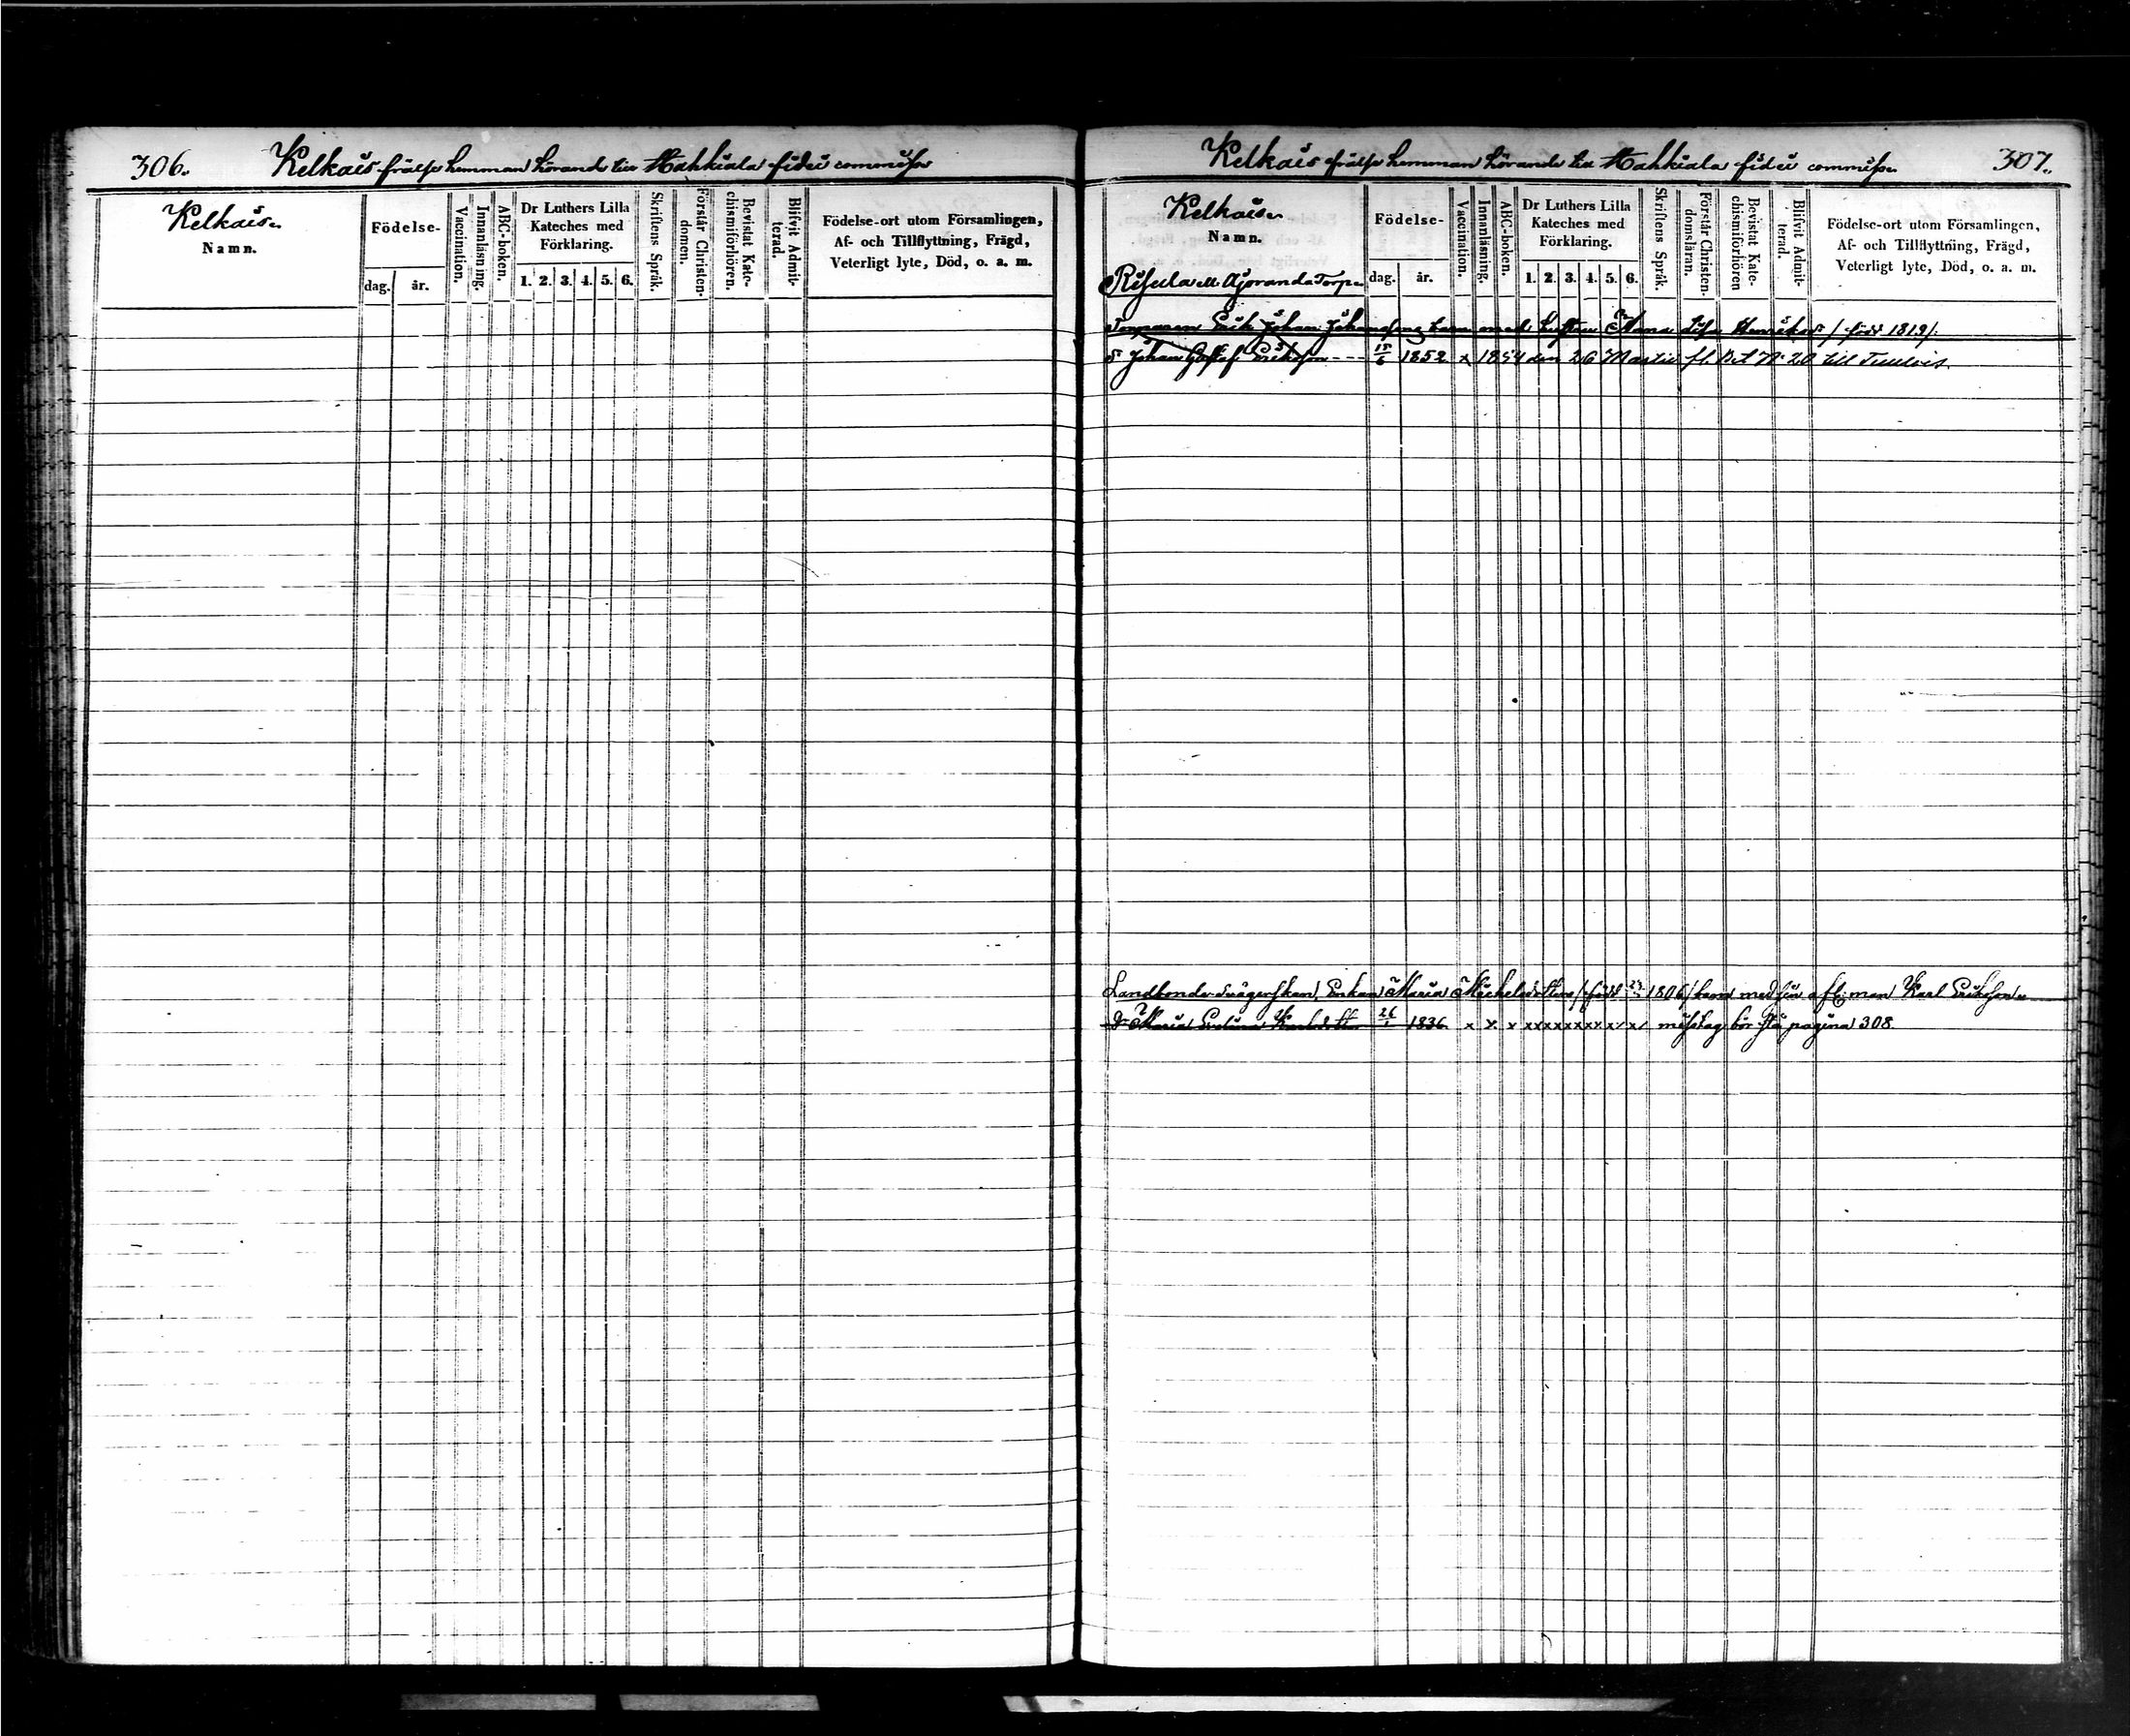 306. Kelkais frälse hemman hörande till Hahkiala fidei commiss
Kelkais.
Namn.
Födelse-
dag.
år.
Vaccination.
Innanläsning.
ABC-boken.
Dr Luthers Lilla
Kateches med
Förklaring.
1. 2. 3. 4. 5. 6.
Skriftens Språk.
Förstår Christen-
domen.
Bevistat Kate-
chismiförhören.
Blifvit Admit-
terad.
Födelse-ort utom Församlingen,
Af- och Tillflyttning, Frägd,
Veterligt lyte, Död, o. a. m.
Kelkais frälse hemman hörande till Hahkiala fidei commiss. 307.
Kelkais.
Namn.
Födelse-
dag.
år.
Vaccination.
Innanläsning.
ABC-boken.
Dr Luthers Lilla
Kateches med
Förklaring.
1. 2. 3. 4. 5. 6.
Skriftens Språk.
Förstår Christen-
domsläran.
Bevistat Kate-
chismiförhören
Blifvit Admit-
terad.
Födelse-ort utom Församlingen,
Af- och Tillflyttning, Frägd,
Veterligt lyte, Död, o. a. m.
Torp.
Torparen Erik Johan Johanssons barn med hustru Anna Lisa Henriksdr / född 1819/.
S Johan Gustaf Eriksson --- 15/6 1852 x 1854 den 26 Martii fl. Bet N° 20 till Tulois.
Landbonde Svägerskan, Enkan Maria Michelsdotters / född 1806/ barn med sin afl: man Karl Eriksson
Dr Maria Evelina Karlsdotter 26/1 1836 x x x xxxxxxxxx x x misstag bör stå pagina 308.